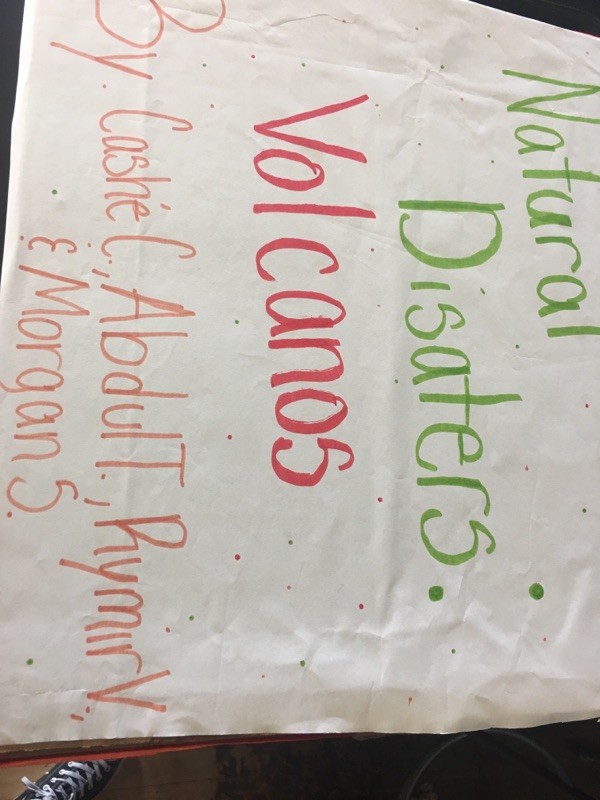 Natural
Disaters:
Volcanos
By. Cashé C., Abdul T., Rymir V.,
& Morgan S.